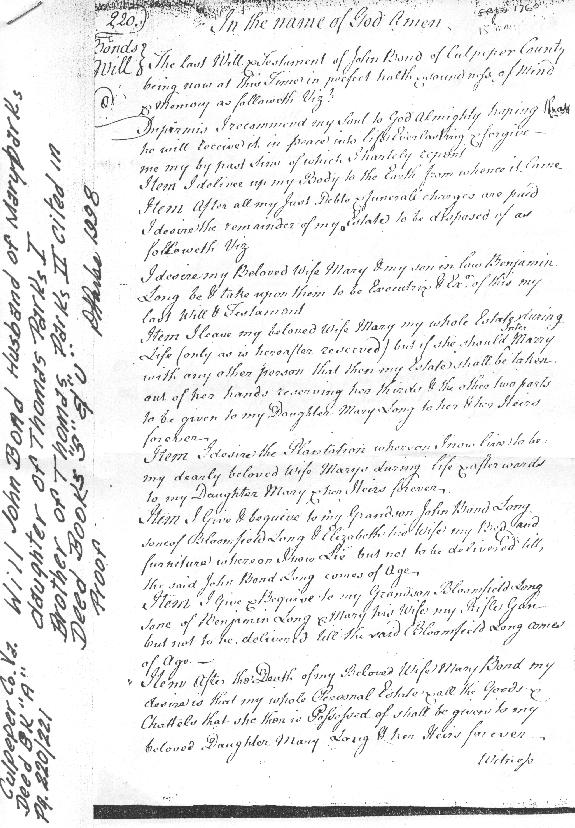 220.)
Bonds
Will
In the name of God Amen
Sept 1760
The Last Will & Testament of John Bond of Culpeper County
being now at this Time in perfect halth & soundness of Mind
& Memory as followeth Viz.t
Inparmis I recommend my Soul to God Almighty hoping
he will receive it in peace into Life Everlasting & forgive
me my by past Sins of which I hartely repent
Item I deliver up my Body to the Earth from whence it Came
Item After all my Just Debts & funerale charges are paid
I desire the remainder of my Estate to be disposed of as
followeth Viz
I desire my Beloved Wife Mary & my son in law Benjamin
Long be & take upon them to be Executrix & Exr. of this my
last Will & Testament
Item I leave my beloved Wife Mary my whole Estate during
Life (only as is hereafter reserved) but if she should Inter Marry
with any other person that then my Estate shall be taken
out of her hands reserving her thirds & the other two parts
to be given to my Daughter Mary Long to her & her Heirs
forever
Item I desire the Plantation whereon I now live to be
my dearly beloved Wife Marys during life & afterwards
to my Daughter Mary & her Heirs forever
Item I Give & bequive to my Grandson John Bond Long
sone of Bloomfield Long & Elizabeth his Wife my Bed and
furniture whereon I now Lie but not to be delivered till
the said John Bond Long comes of Age
Item I Give & Bequive to my Grandson Bloomfield Long
sone of Benjamin Long & Mary his Wife my Rifle Gun
but not to be delivered till the said Bloomfield Long comes
of Age
Item After the Death of my Beloved Wife Mary Bond my
desire is that my whole Personal Estate & all the Goods &
Chattels that she then is Possessed of shall be given to my
beloved Daughter Mary Long & her Heirs forever
Witness
Will John Bond Husband of Mary Parks
daughter of Thomas Parks I
Brother of Thomas Parks II cited in
Deed Books "S" & "U"
Proof
1998
Culpeper Co. Va.
Deed BK "A"
Pg. 220/221